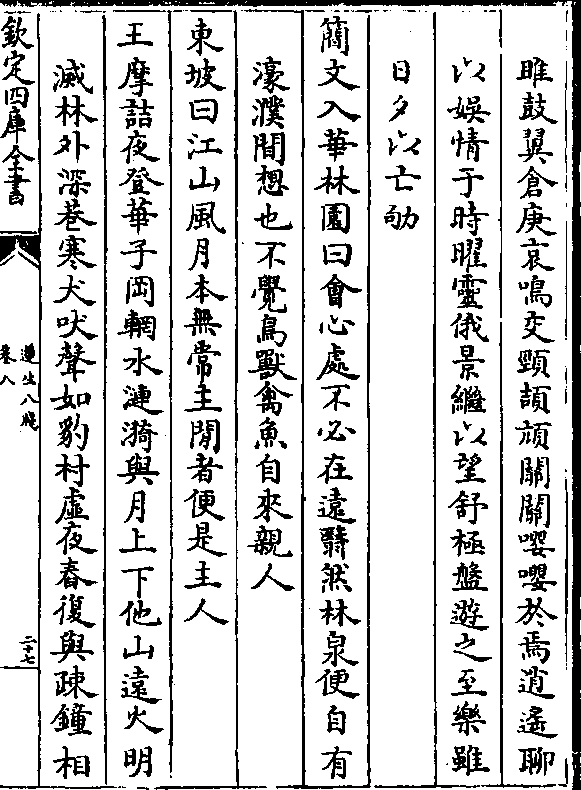 雎鼓翼倉庚哀鳴交頸頡頏關關嚶嚶於焉逍遙聊
以娛情于時曜靈俄景繼以望舒極盤遊之至樂雖
日夕以亡劬
簡文入華林園曰會心處不必在遠翳然林泉便自有
濠濮間想也不覺鳥獸禽魚自來親人
東坡曰江山風月本無常主閒者便是主人
王摩詰夜登華子岡輞水漣漪與月上下他山遠火明
滅林外深巷寒犬吠聲如豹村虛夜舂復與疎鐘相
欽定四庫全書
遵生八牋
卷八
二十七